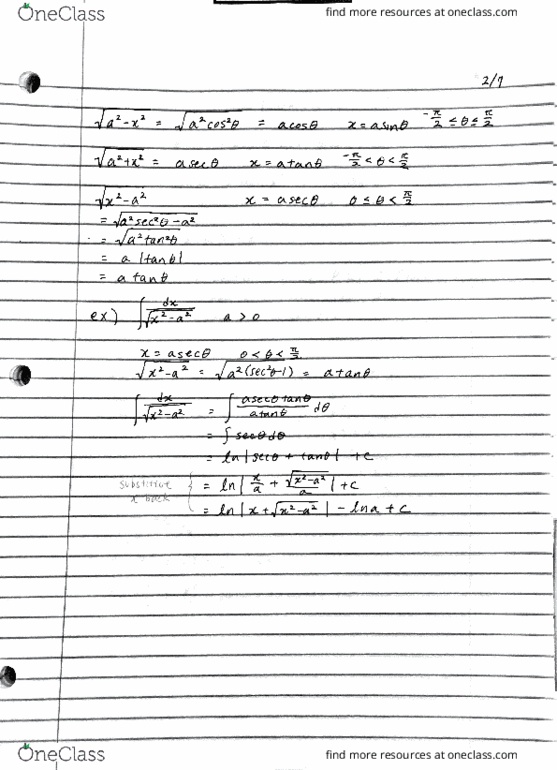 OneClass find more resources at oneclass.com
2/7
√a²-x² = √a²cos²θ = acosθ x = asinθ -π/2 ≤ θ ≤ π/2
√a²+x² = asecθ x = atanθ -π/2 < θ < π/2
√x²-a² x = asecθ 0 ≤ θ < π/2
= √a²sec²θ-a²
= √a²tan²θ
= a |tanθ|
= a tanθ
ex) ∫ dx/√x²-a² a > 0
x = asecθ 0 < θ < π/2
√x²-a² = √a²(sec²θ-1) = atanθ
∫ dx/√x²-a² = ∫ asecθtanθ/atanθ dθ
= ∫ secθdθ
= ln|secθ + tanθ| + c
substitute x back = ln|x/a + √x²-a²/a| + c
= ln|x+√x²-a²| - lna + c
OneClass find more resources at oneclass.com